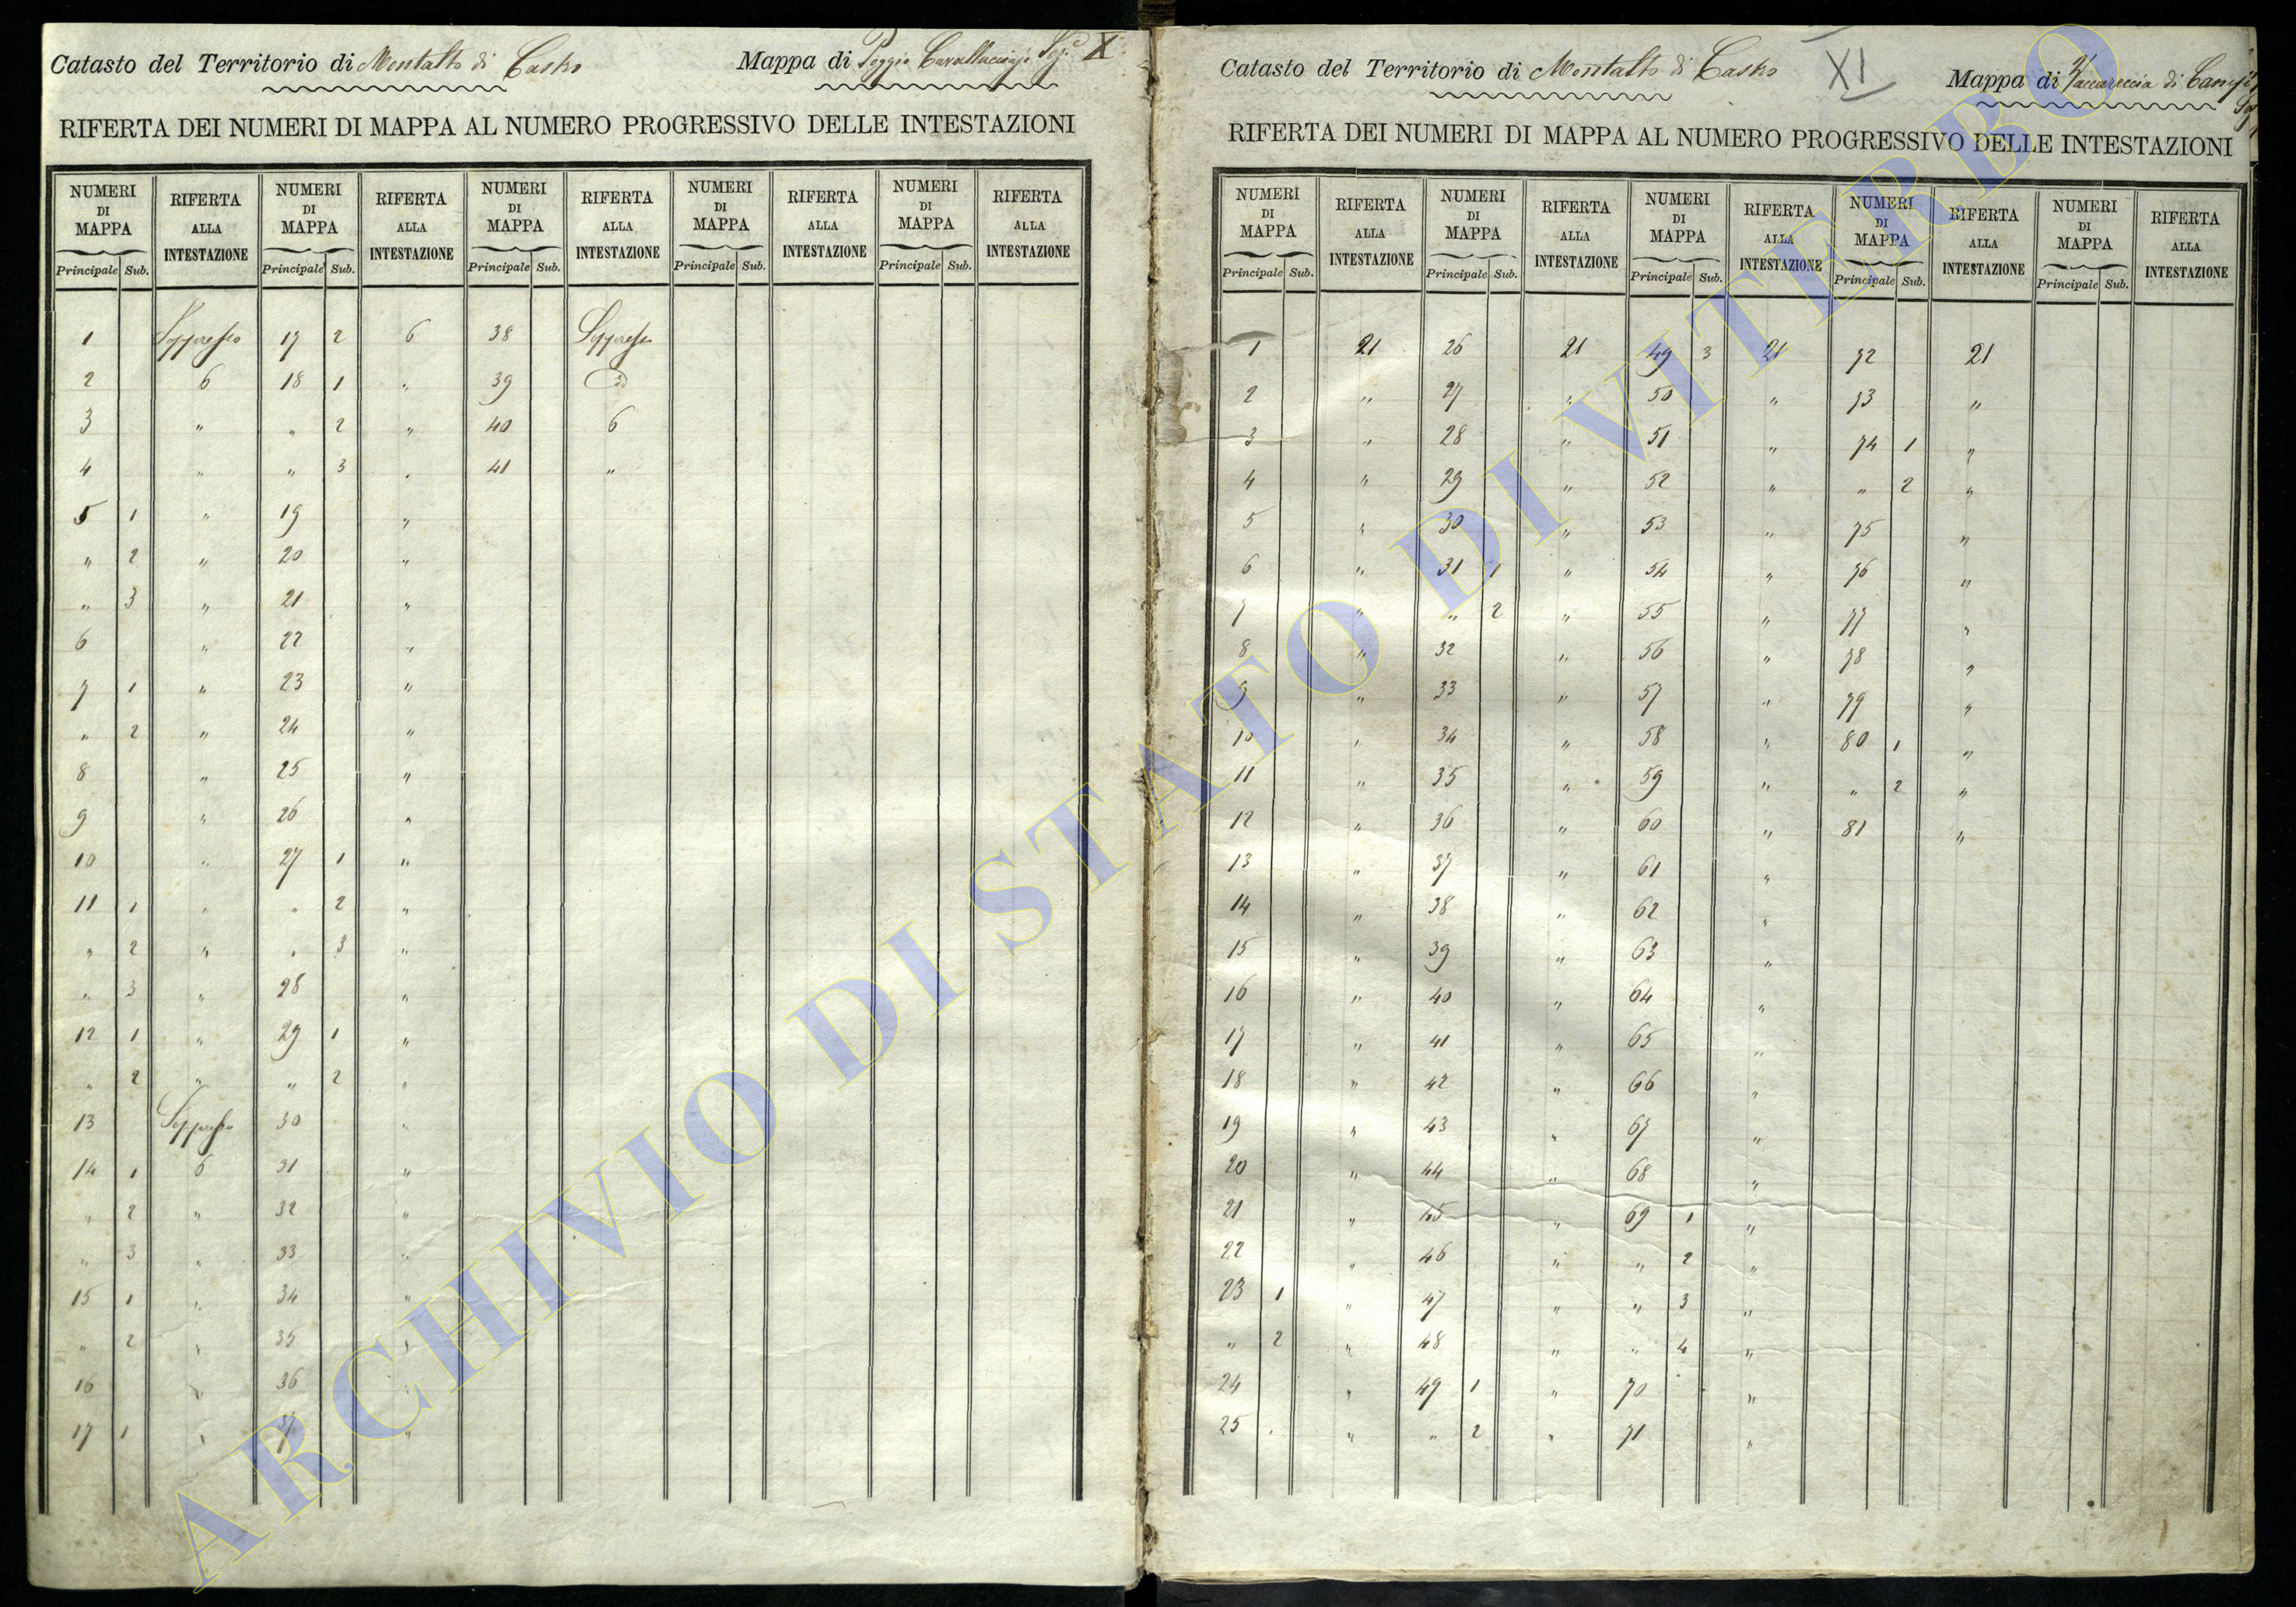 Catasto del Territorio di Montalto di Castro Mappa di Poggio X
RIFERTA DEI NUMERI DI MAPPA AL NUMERO PROGRESSIVO DELLE INTESTAZIONI
NUMERI DI MAPPA RIFERTA ALLA INTESTAZIONE NUMERI DI MAPPA RIFERTA ALLA INTESTAZIONE NUMERI DI MAPPA RIFERTA ALLA INTESTAZIONE NUMERI DI MAPPA RIFERTA ALLA INTESTAZIONE NUMERI DI MAPPA RIFERTA ALLA INTESTAZIONE
Principale Sub. Principale Sub. Principale Sub. Principale Sub. Principale Sub.
1 Soppresso 17 2 6 38 Soppresso
2 6 18 1 " 39 d
3 " " 2 " 40 6
4 " " 3 " 41 "
5 1 " 19 "
" 2 " 20 "
" 3 " 21 "
6 " 22 "
7 1 " 23 "
" 2 " 24 "
8 " 25 "
9 " 26 "
10 " 27 1 "
11 1 " " 2 "
" 2 " " 3 "
" 3 " 28 "
12 1 " 29 1 "
" 2 " " 2 "
13 Soppresso 30 "
14 1 6 31 "
" 2 " 32 "
" 3 " 33 "
15 1 " 34 "
" 2 " 35 "
16 " 36 "
17 1 " 37 "
Catasto del Territorio di Montalto di Castro XI Mappa di Vaccareccia di
RIFERTA DEI NUMERI DI MAPPA AL NUMERO PROGRESSIVO DELLE INTESTAZIONI
NUMERI DI MAPPA RIFERTA ALLA INTESTAZIONE NUMERI DI MAPPA RIFERTA ALLA INTESTAZIONE NUMERI DI MAPPA RIFERTA ALLA INTESTAZIONE NUMERI DI MAPPA RIFERTA ALLA INTESTAZIONE NUMERI DI MAPPA RIFERTA ALLA INTESTAZIONE
Principale Sub. Principale Sub. Principale Sub. Principale Sub. Principale Sub.
1 21 26 21 49 3 21 72 21
2 " 27 " 50 " 73 "
3 " 28 " 51 " 74 1 "
4 " 29 " 52 " " 2 "
5 " 30 " 53 " 75 "
6 " 31 1 " 54 " 76 "
7 " " 2 " 55 " 77 "
8 " 32 " 56 " 78 "
9 " 33 " 57 " 79 "
10 " 34 " 58 " 80 1 "
11 " 35 " 59 " " 2 "
12 " 36 " 60 " 81 "
13 " 37 " 61 "
14 " 38 " 62 "
15 " 39 " 63 "
16 " 40 " 64 "
17 " 41 " 65 "
18 " 42 " 66 "
19 " 43 " 67 "
20 " 44 " 68 "
21 " 45 " 69 1 "
22 " 46 " " 2 "
23 1 " 47 " " 3 "
" 2 " 48 " " 4 "
24 " 49 1 " 70 "
25 " " 2 " 71 "
ARCHIVIO DI STATO DI VITERBO